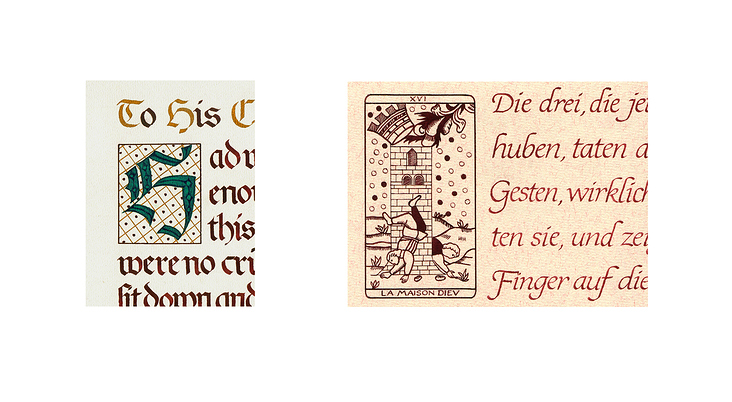 To His C
Had w
enou
this
were no cri
sit down and
XVI
LA MAISON DIEV
Die drei, die je
huben, taten a
Gesten, wirklich
ten sie, und zei
Finger auf die